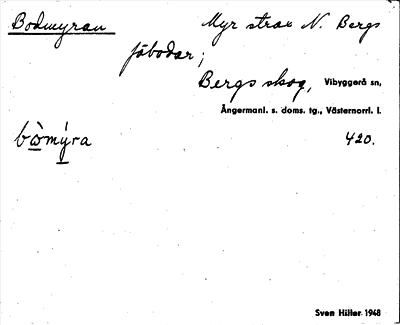 Bodmyran Myr strax N. Bergs
fäbodar;
Bergs skog, Vibyggerå sn,
Ångermanl. s. doms. tg., Västernorrl. l.
bòmýra 420.
Sven Hiller 1948